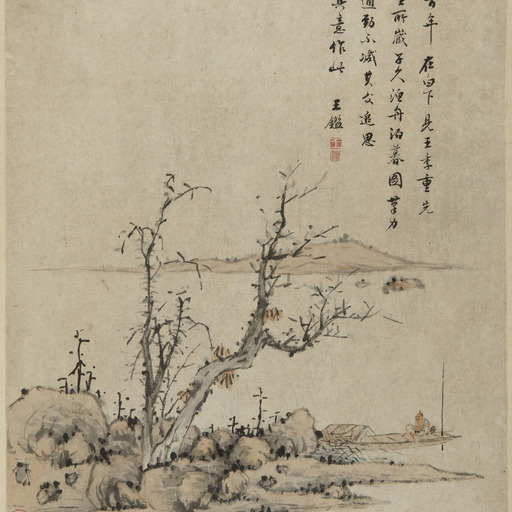 昔年在白下見王季重先
生所藏子久漁舟泊暮圖筆力
遒勁不減其追思
其意作此 王鑑